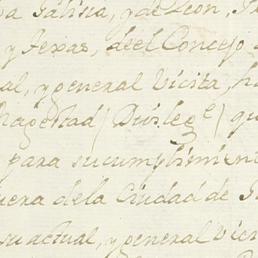 va Galicia, y de Leon, Te
y Texas, del Concejo
al, y general Vicita, ha
Magestad (Dios le g.e) qu
para su cumplimien
uera dela Ciudad de S
su actual, y general Vici